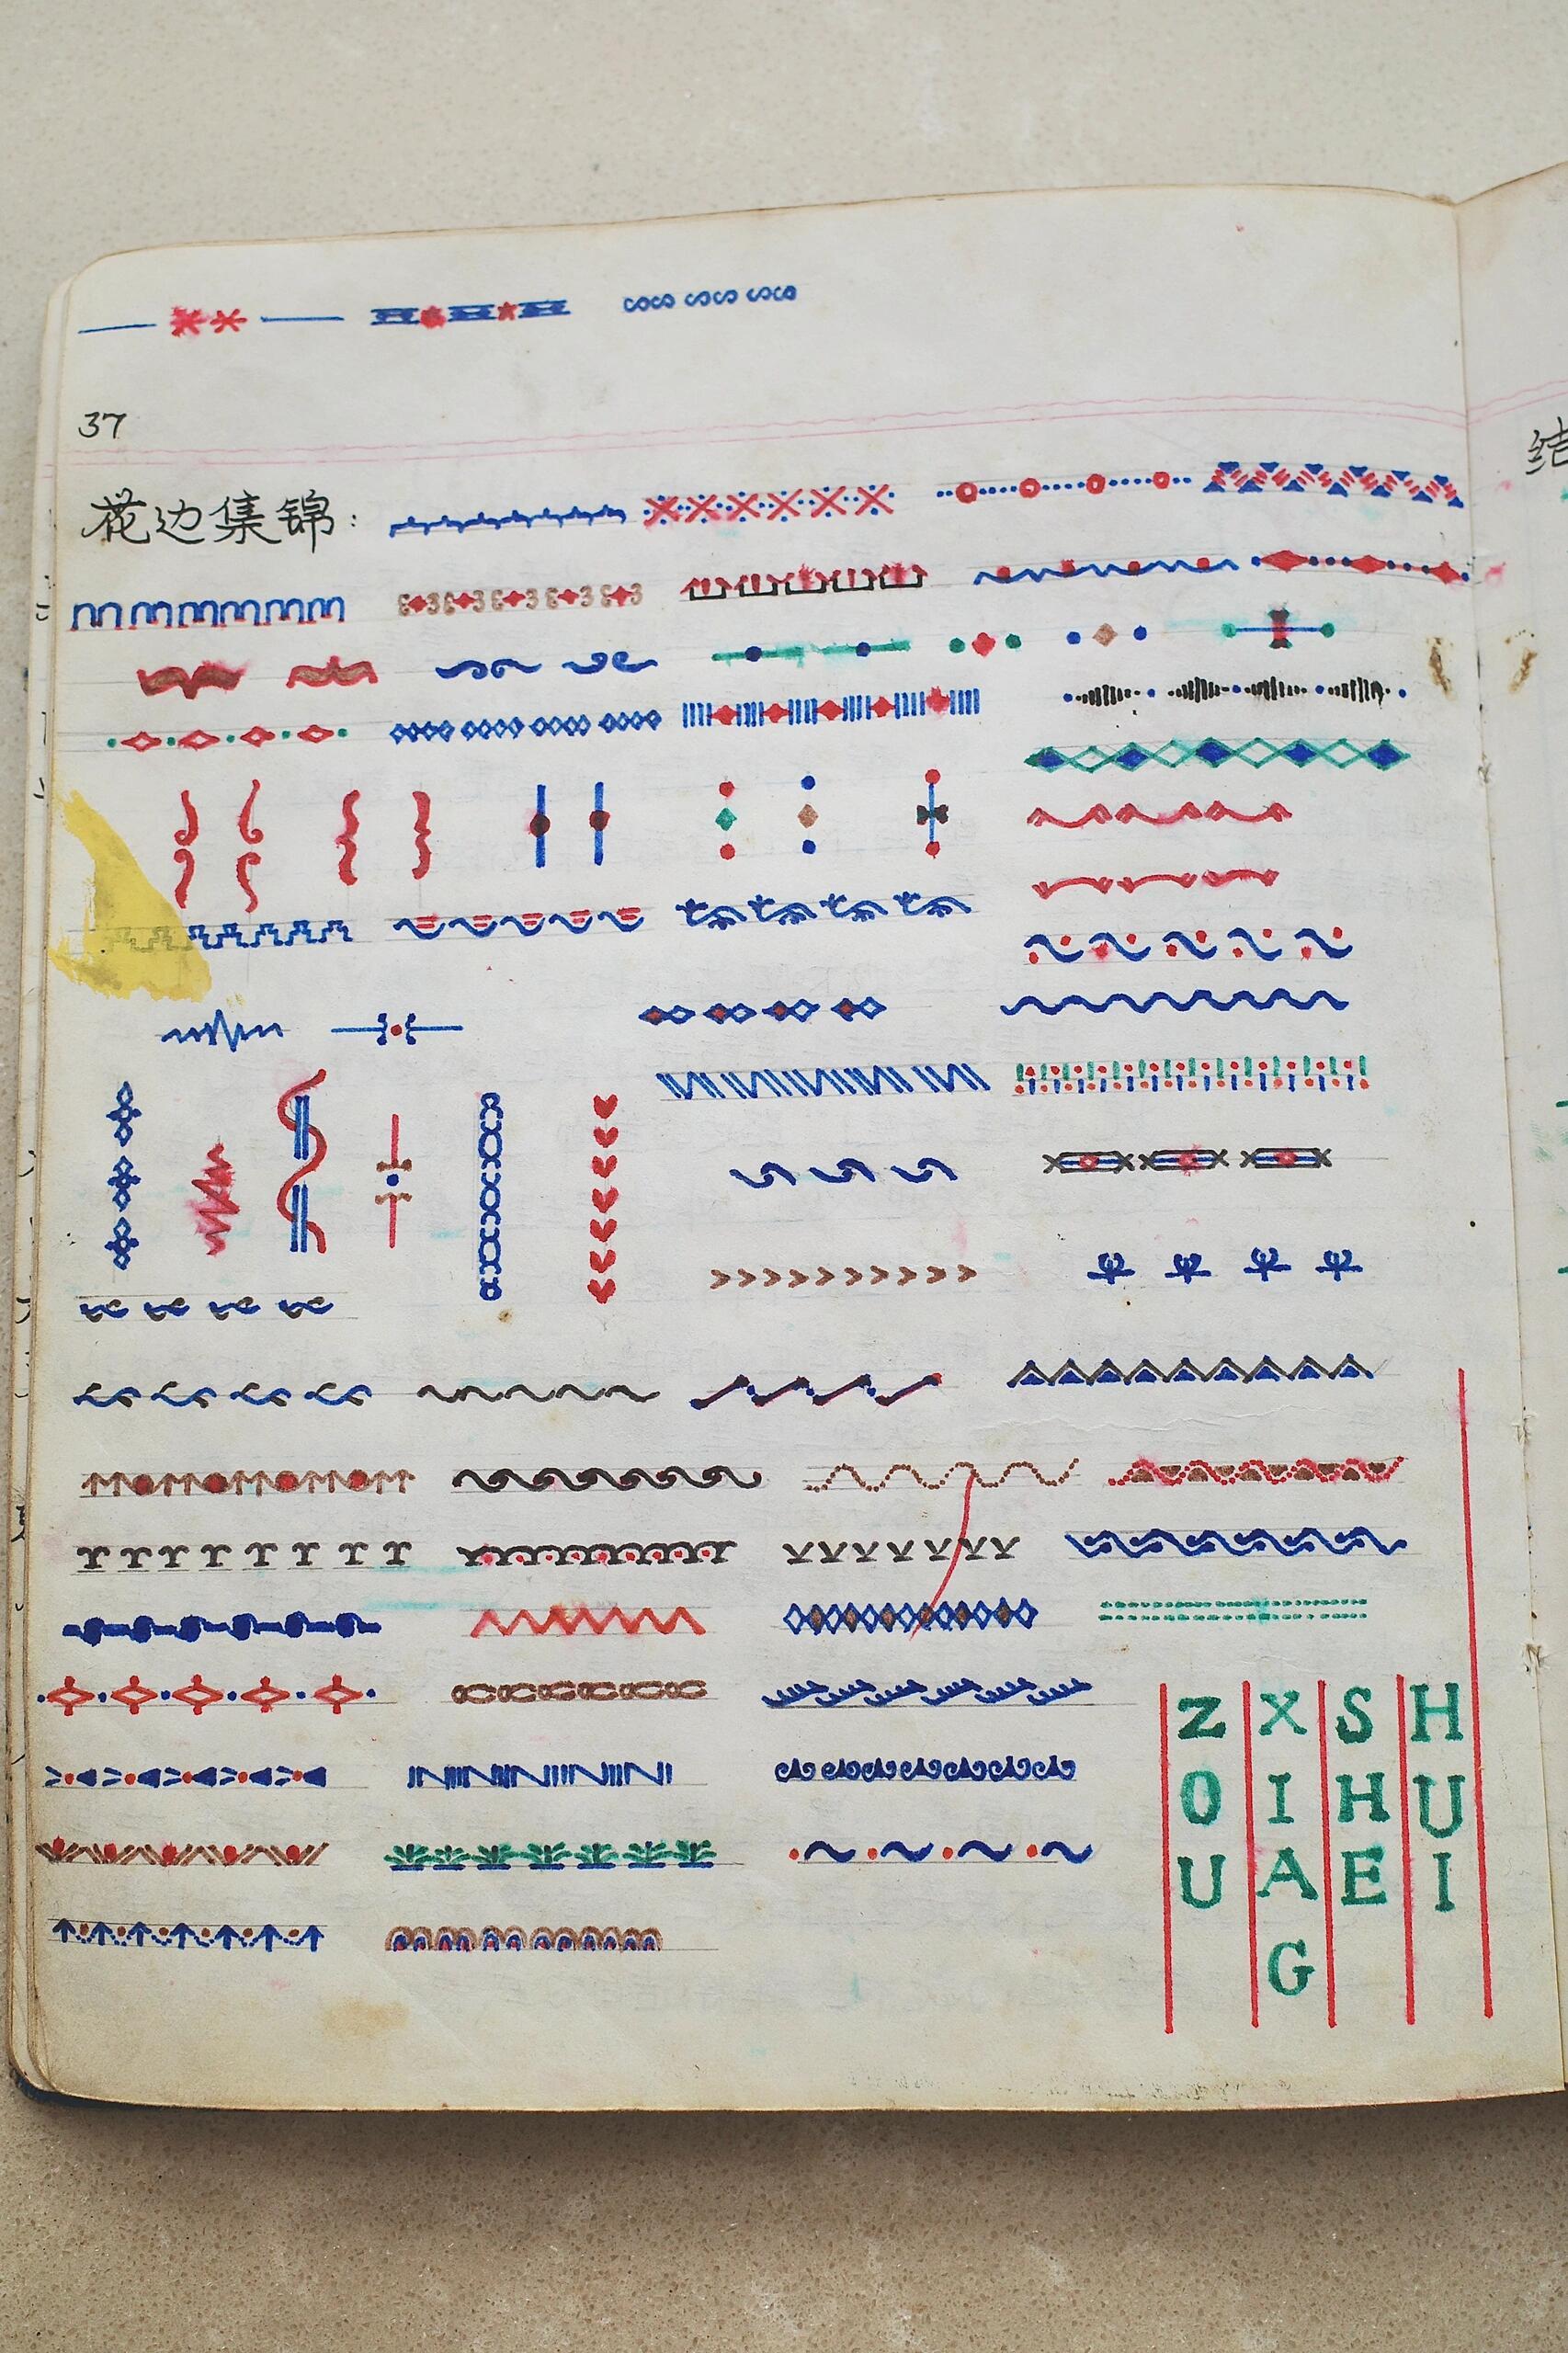 37
花边集锦:
结
Z X S H
O I H U
U A E I
G